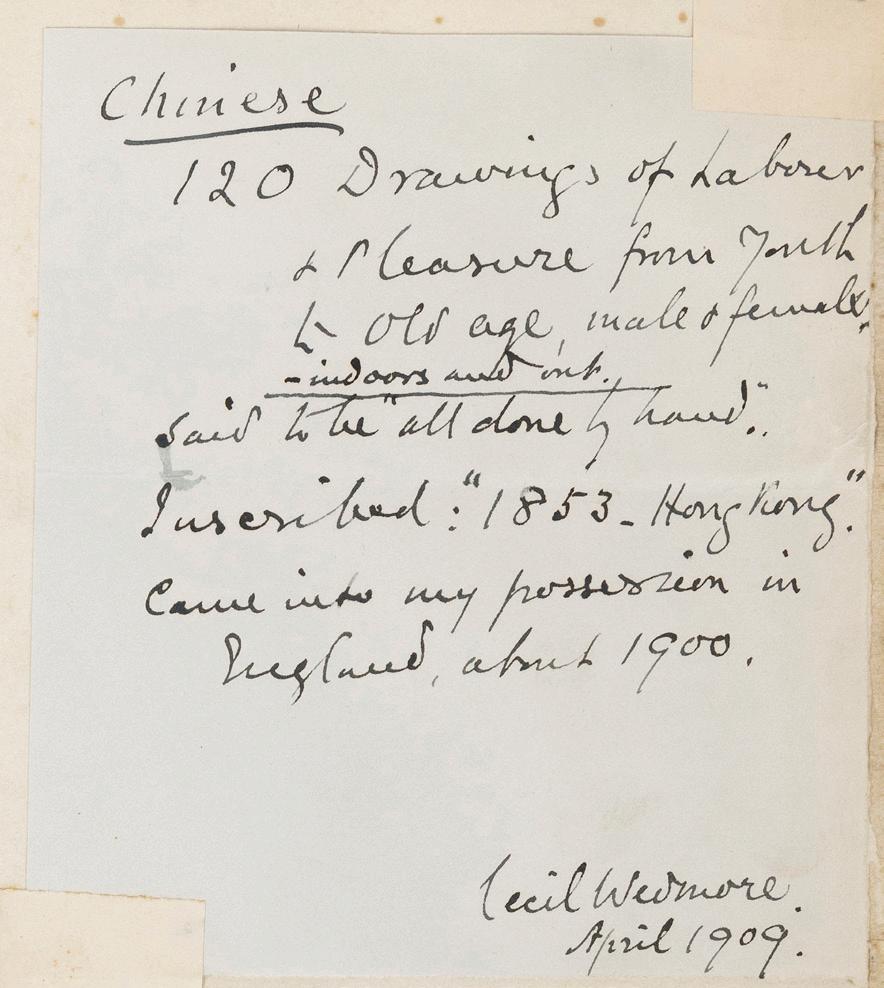 Chinese
120 Drawings of Labour
& Pleasure from Youth
to Old age, male & female,
- indoors and out.
said to be "all done by hand".
Inscribed: "1853 - Hong Kong".
Came into my possession in
England, about 1900.
Cecil Wedmore.
April 1909.